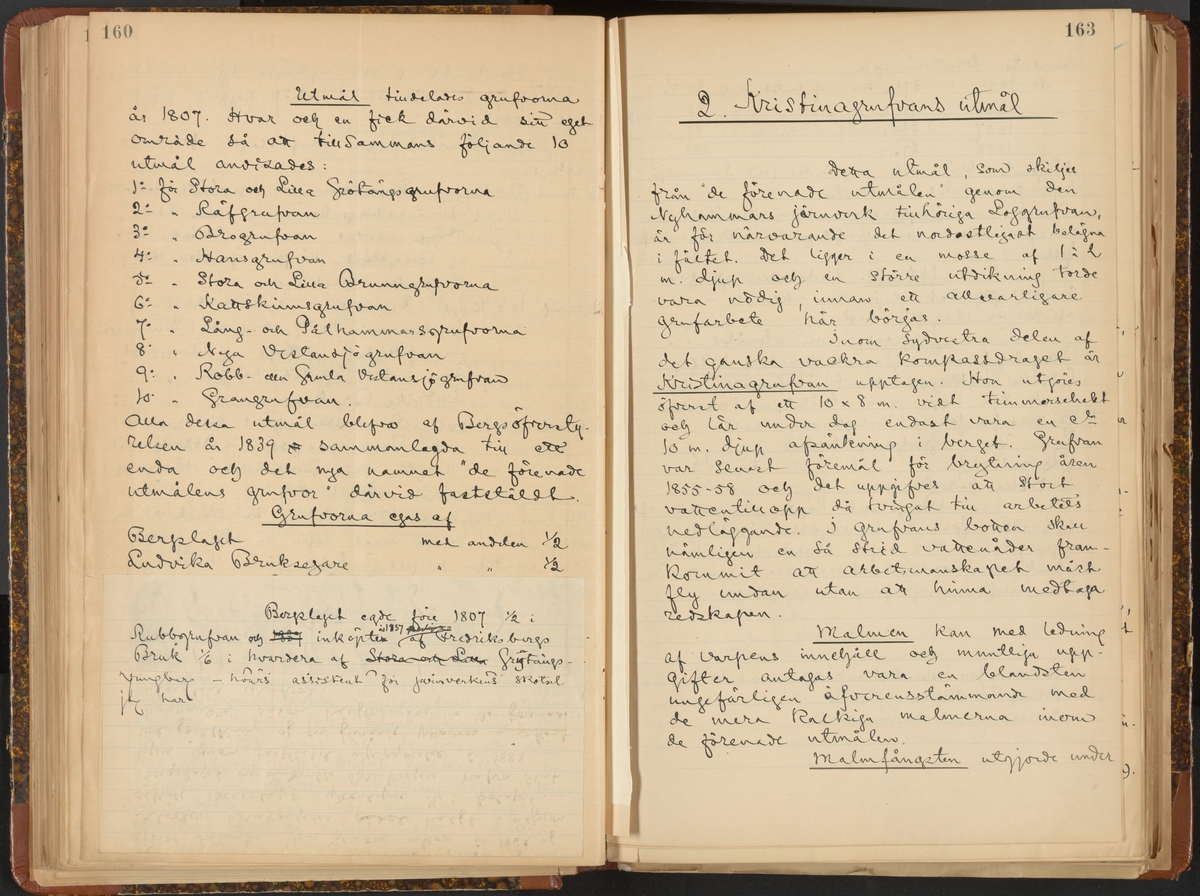 160
Utmål tilldelades grufvorna
år 1807. Hvar och en fick därvid sitt eget
område så att tillsammans följande 10
utmål anvisades:
1º för Stora och Lilla Grötängsgrufvorna
2º " Räfgrufvan
3º " Brogrufvan
4º " Hansgrufvan
5º " Stora och Lilla Brunngrufvorna
6º " Kattskinnsgrufvan
7º " Lång- och Pålhammarsgrufvorna
8º " Nya Vestansjögrufvan
9º " Robb- eller Gamla Vestansjögrufvan
10º " Grangrufvan.
Alla dessa utmål blefvo af Bergsöfversty-
relsen år 1839 sammanlagda till ett
enda och det nya namnet "de förenade
utmålens grufvor" därvid fastställdt.
Grufvorna egas af
Bergslaget med andelen 1/2
Ludvika Bruksegare " " 1/2
Bergslaget egde före 1807 1/2 i
Rubbogrufvan och 1837 inköptes i 1857 af Fredriksbergs
Bruk 1/6 i hvardera af Stora och Lilla Grötängs-
Ljungberg – hörs assistent för järnverkens skötsel
jag har
163
2. Kristinagrufvans utmål
Detta utmål, som skiljes
från "de förenade utmålen" genom den
Nyhammars järnverk tillhöriga Loggrufvan,
är för närvarande det nordostligast belägna
i fältet. Det ligger i en mosse af 1 à 2
m. djup och en större utdikning torde
vara nödig, innan ett allvarligare
grufarbete här börjas.
Inom sydvestra delen af
det ganska vackra kompassdraget är
Kristinagrufvan upptagen. Hon utgöres
öfverst af ett 10 x 8 m. vidt timmerschakt
och lär under dag endast vara en cª
10 m. djup afsänkning i berget. Grufvan
var senast föremål för brytning åren
1855-58 och det uppgifves att stort
vattentillopp då tvingat till arbetets
nedläggande. I grufvans botten skall
nämligen en så strid vattenåder fram-
kommit att arbetmanskapet måst
fly undan utan att hinna medtaga
redskapen.
Malmen kan med ledning
af varpens innehåll och muntliga upp-
gifter antagas vara en blandsten
ungefärligen öfverensstämmande med
de mera kalkiga malmerna inom
de förenade utmålen.
Malmfångsten utgjorde under